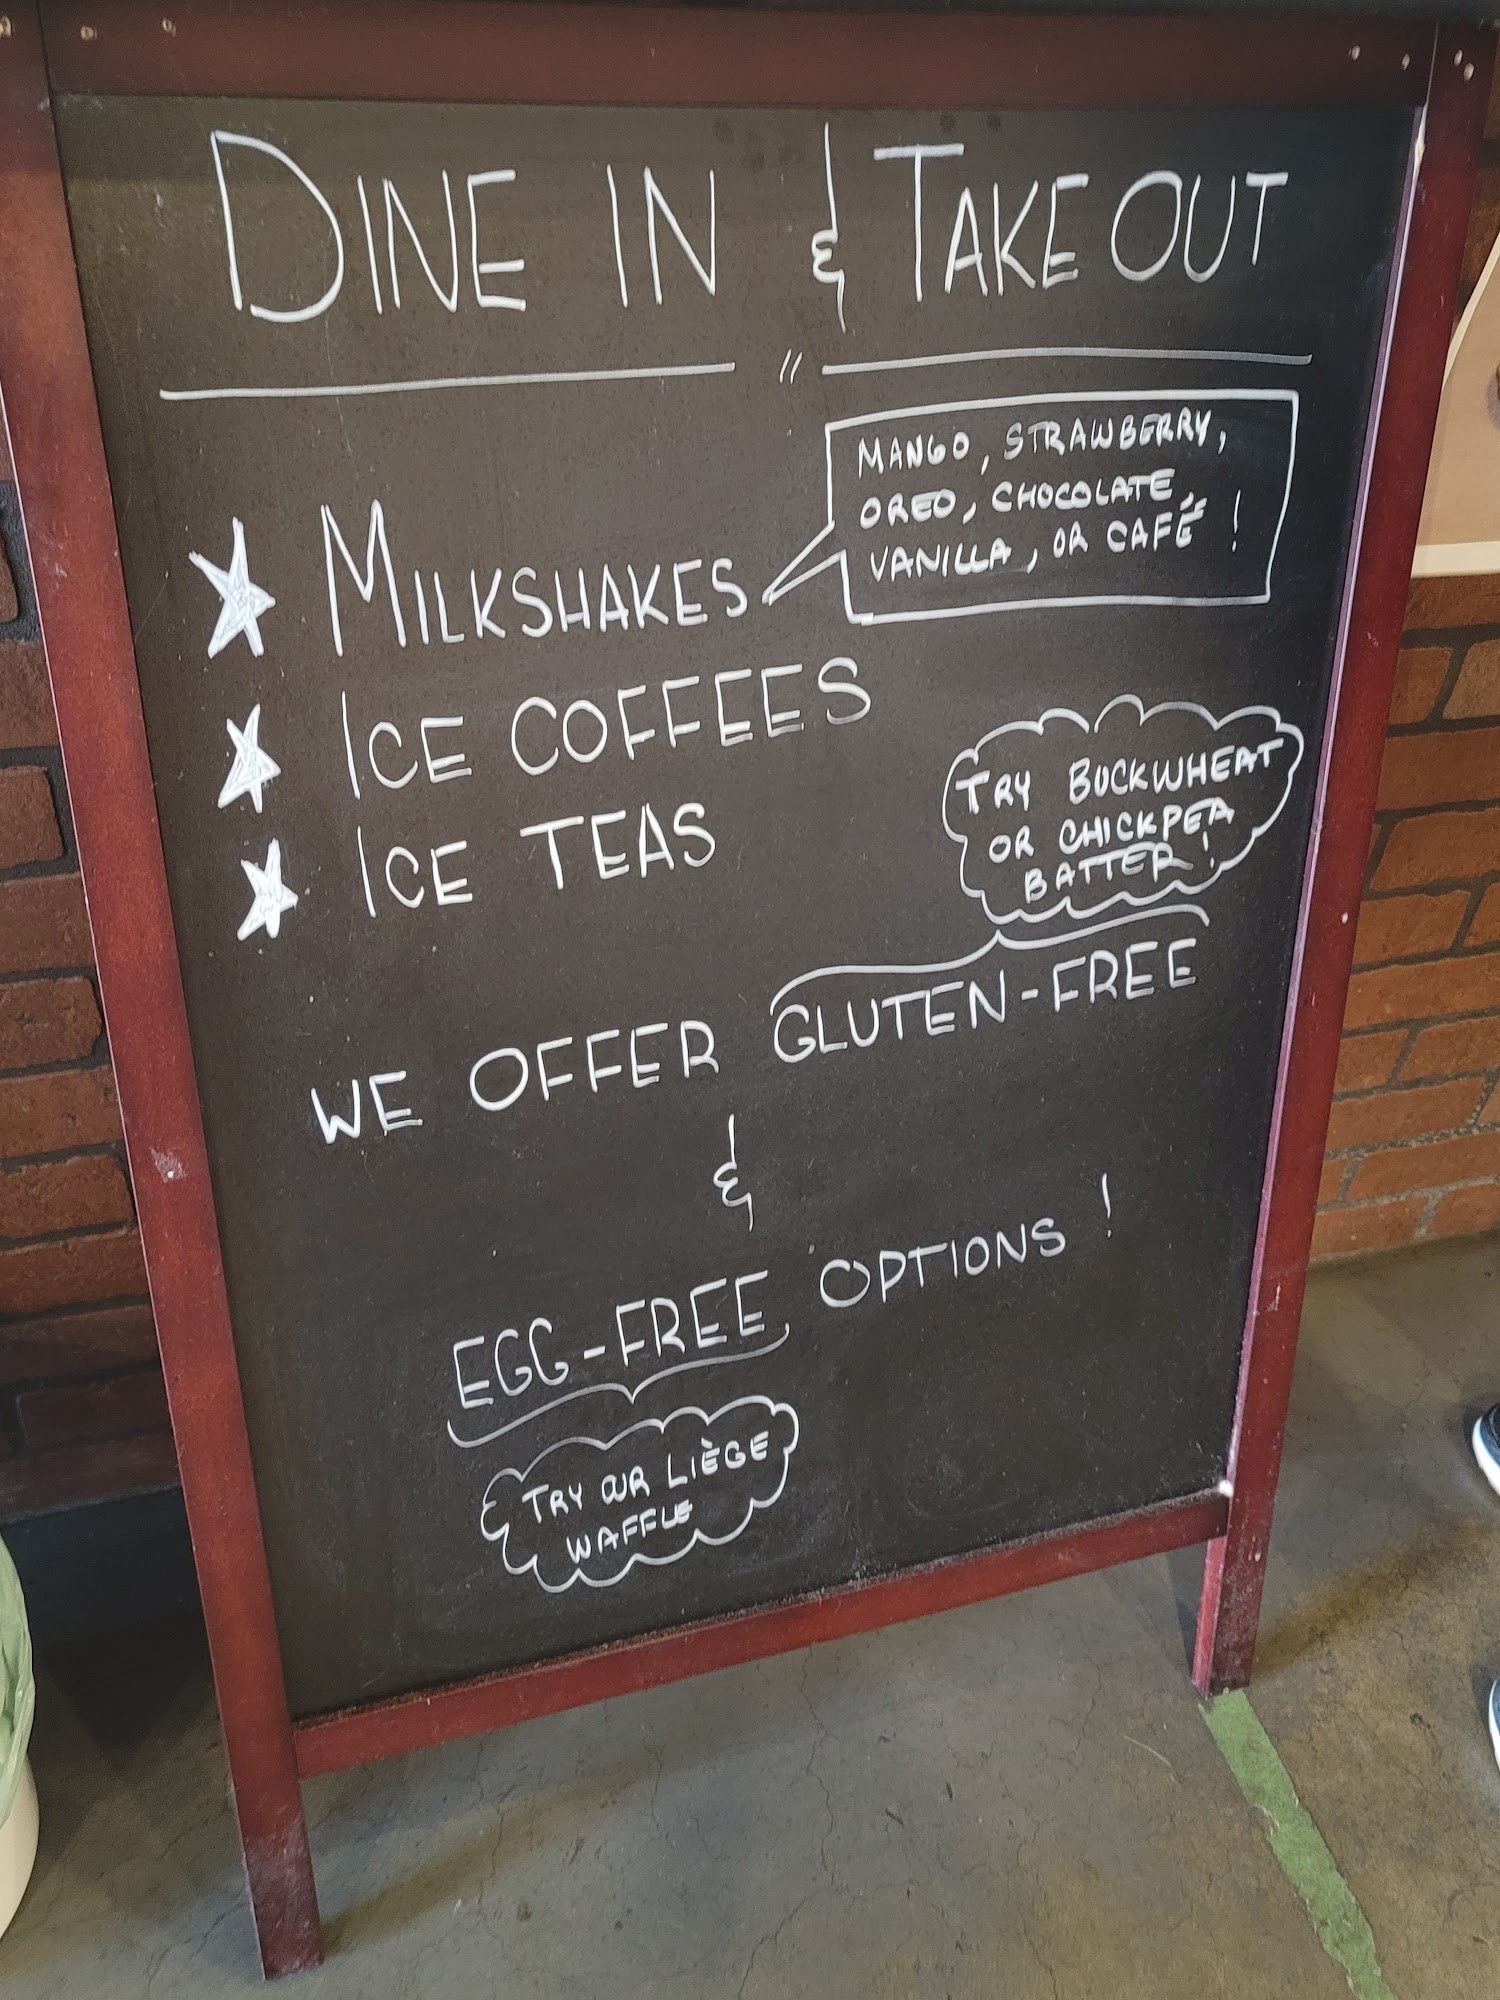 DINE IN & TAKE OUT
"
MANGO, STRAWBERRY,
OREO, CHOCOLATE,
VANILLA, OR CAFÉ!
MILKSHAKES
ICE COFFEES
ICE TEAS
TRY BUCKWHEAT
OR CHICKPEA
BATTER!
WE OFFER GLUTEN-FREE
&
EGG-FREE OPTIONS!
TRY OUR LIÈGE
WAFFLE